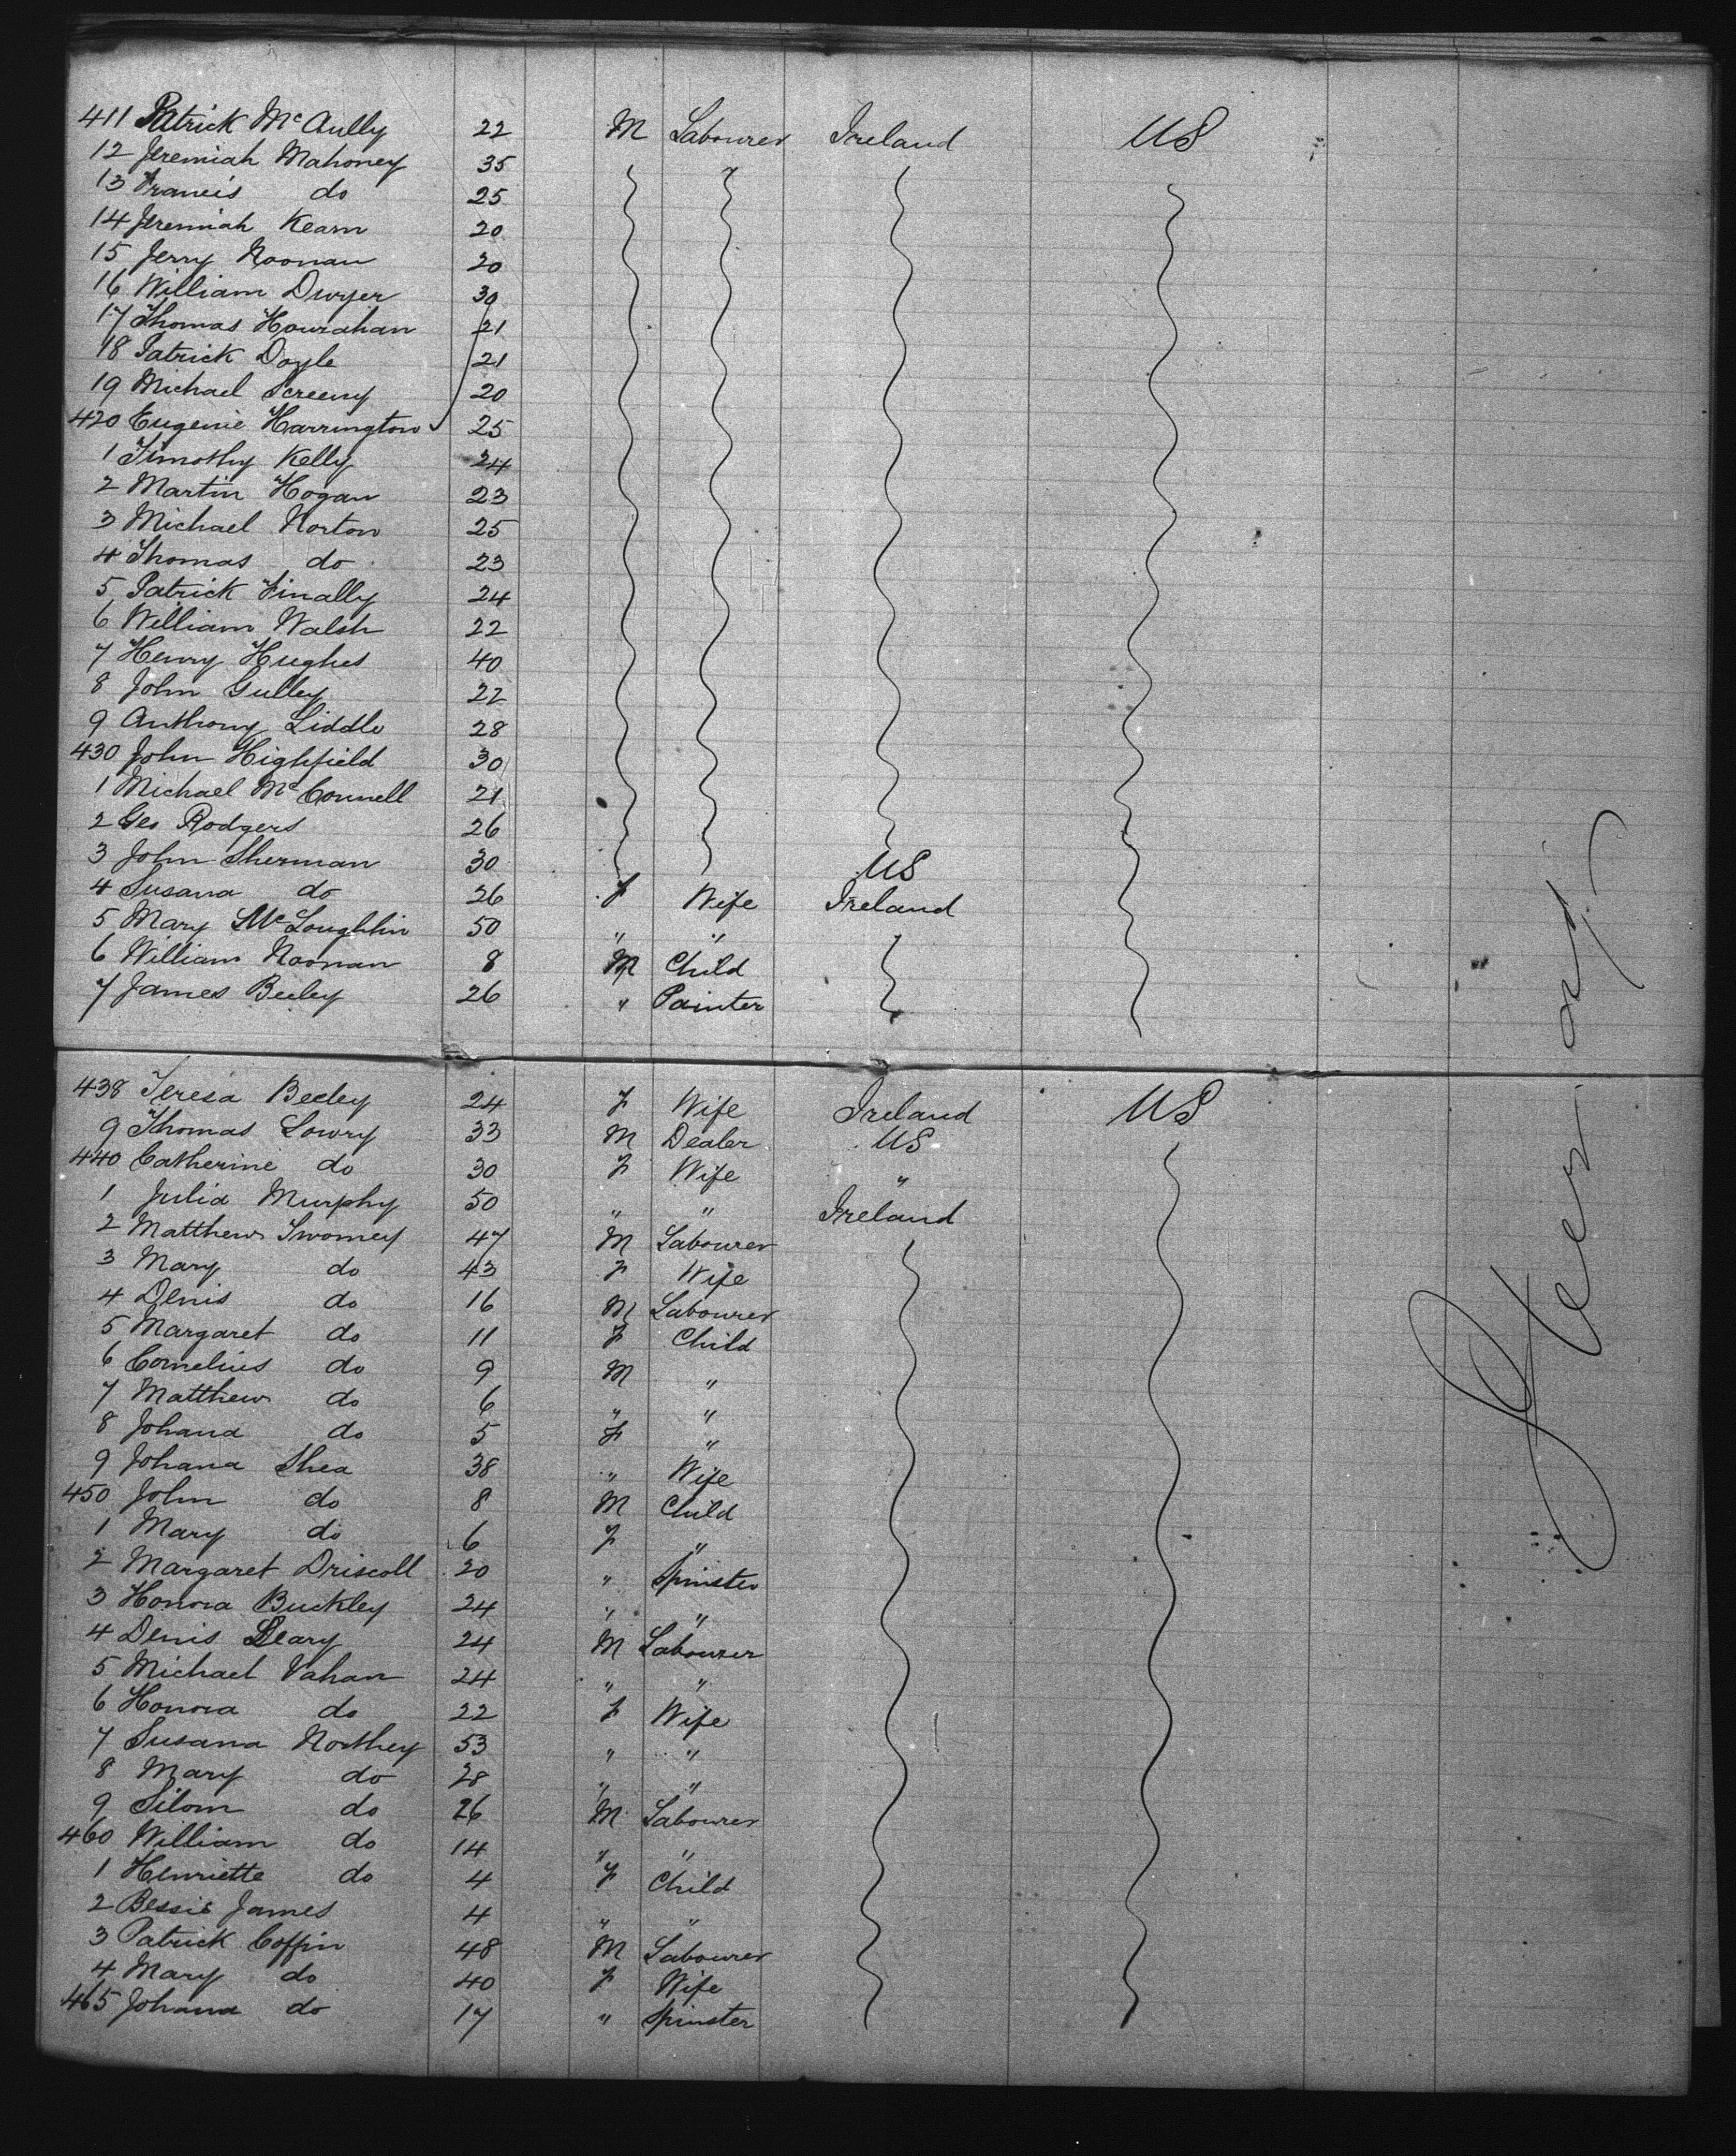 411 Patrick McAully 22 M Labourer Ireland US
12 Jeremiah Mahoney 35
13 Francis do 25
14 Jeremiah Kearn 20
15 Jerry Noonan 20
16 William Dwyer 30
17 Thomas Hourahan 21
18 Patrick Doyle 21
19 Michael Screeny 20
420 Eugenie Harrington 25
1 Timothy Kelly 24
2 Martin Hogan 23
3 Michael Norton 25
4 Thomas do 23
5 Patrick Finally 24
6 William Walsh 22
7 Henry Hughes 40
8 John Gulley 22
9 Anthony Liddle 28
430 John Highfield 30
1 Michael McConnell 21
2 Geo Rodgers 26
3 John Sherman 30 US
4 Susana do 26 F Wife Ireland
5 Mary McLoughlin 50 " "
6 William Noonan 8 M Child
7 James Beeley 26 " Painter
438 Teresa Beeley 24 F Wife Ireland US
9 Thomas Lowry 33 M Dealer US
440 Catherine do 30 F Wife "
1 Julia Murphy 50 " " Ireland
2 Matthew Twomey 47 M Labourer
3 Mary do 43 F Wife
4 Denis do 16 M Labourer
5 Margaret do 11 F Child
6 Cornelius do 9 M "
7 Matthew do 6 " "
8 Johana do 5 F "
9 Johana Shea 38 " Wife
450 John do 8 M Child
1 Mary do 6 F "
2 Margaret Driscoll 20 " Spinster
3 Honora Buckley 24 " "
4 Denis Leary 24 M Labourer
5 Michael Vahan 24 " "
6 Honora do 22 F Wife
7 Susana Northey 53 " "
8 Mary do 28 " "
9 Silom do 26 M Labourer
460 William do 14 " "
1 Henriette do 4 F Child
2 Bessie James 4 " "
3 Patrick Coffin 48 M Labourer
4 Mary do 40 F Wife
465 Johana do 17 " Spinster
Steerage